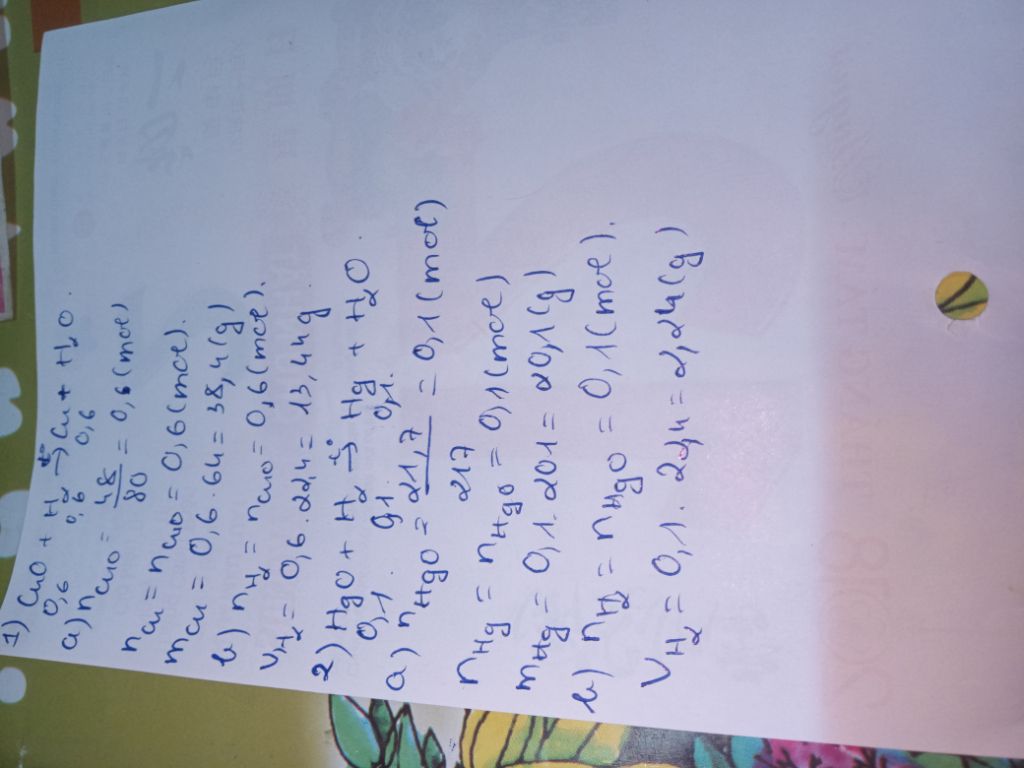 1) CuO + H₂ →t° Cu + H₂O.
0,6 0,6 0,6
a) nCuO = 48/80 = 0,6 (mol)
nCu = nCuO = 0,6 (mol).
mCu = 0,6 . 64 = 38,4 (g)
b) nH₂ = nCuO = 0,6 (mol).
VH₂ = 0,6 . 22,4 = 13,44 g.
2) HgO + H₂ →t° Hg + H₂O.
0,1. 0,1 0,1.
a) nHgO = 21,7/217 = 0,1 (mol)
nHg = nHgO = 0,1 (mol)
mHg = 0,1. 201 = 20,1 (g)
b) nH₂ = nHgO = 0,1 (mol).
VH₂ = 0,1. 22,4 = 2,24 (g)